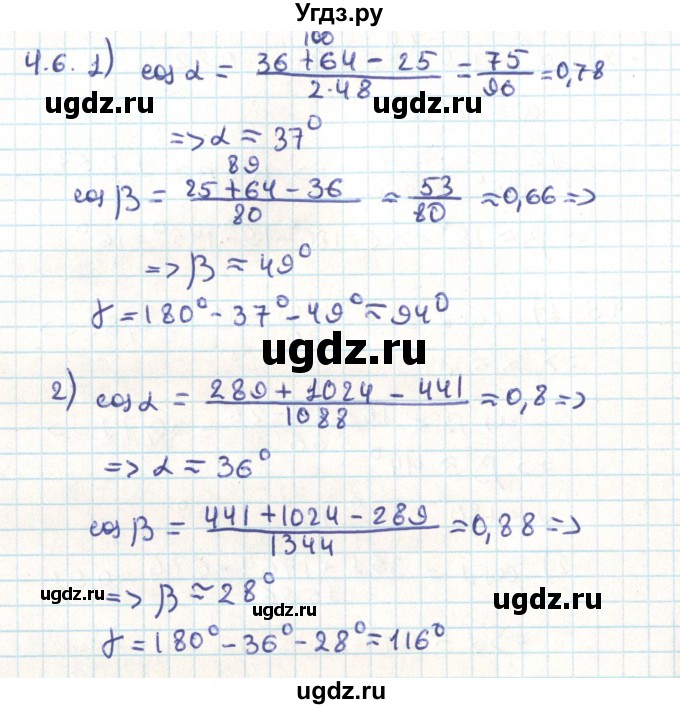 Угдз.ру
4.6. 1) cos α = (36 + 64 - 25)/(2·48) = 75/96 = 0,78
100
ugdz.ru ugdz.ru
=> α ≈ 37°
89
cos β = (25 + 64 - 36)/80 ≈ 53/80 ≈ 0,66 =>
=> β ≈ 49°
γ = 180° - 37° - 49° ≈ 94°
ugdz.ru
2) cos α = (289 + 1024 - 441)/1088 ≈ 0,8 =>
=> α ≈ 36°
cos β = (441 + 1024 - 289)/1344 ≈ 0,88 =>
=> β ≈ 28°
ugdz.ru ugdz.ru ugdz.ru
γ = 180° - 36° - 28° = 116°
ugdz.ru